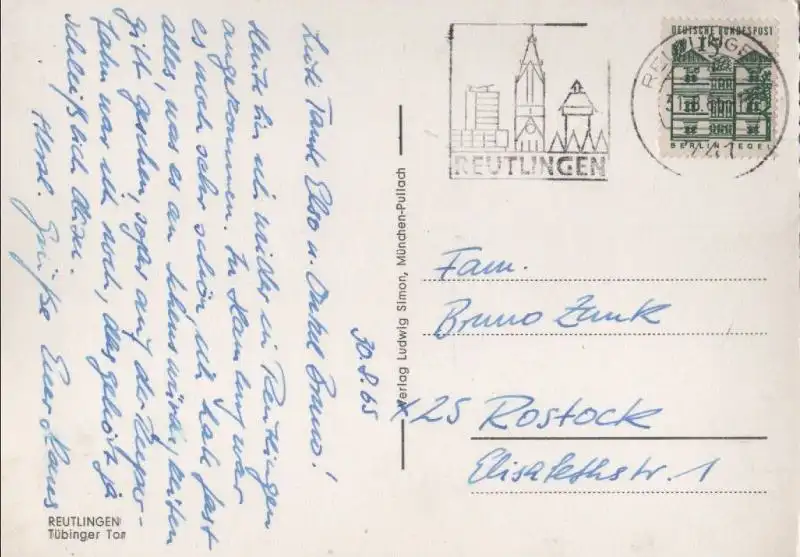 30.8.65
Liebe Tante Else u. Onkel Bruno!
Heute bin ich wieder in Reutlingen
angekommen. In Hamburg war
es noch sehr schön ich habe fast
alles, was es an Sehenswürdigkeiten
gibt gesehen, sogar auf der Reeper-
bahn war ich noch, das gehört ja
schließlich dazu.
Herzl. Grüße Euer Hans
REUTLINGEN
Tübinger Tor
Verlag Ludwig Simon, München-Pullach
REUTLINGEN
REUTLINGEN
741
DEUTSCHE BUNDESPOST
15
BERLIN TEGEL
Fam.
Bruno Zunk
X25 Rostock
Elisabethstr. 1